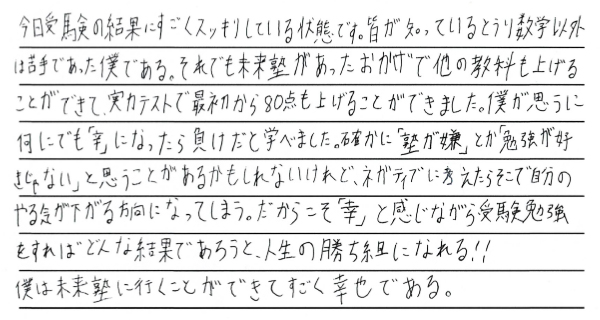 今日受験の結果にすごくスッキリしている状態です。皆が知っているとうり数学以外
は苦手であった僕である。それでも未来塾があったおかげで他の教科も上げる
ことができて、実力テストで最初から80点も上げることができました。僕が思うに
何にでも「幸」になったら負けだと学べました。確かに「塾が嫌」とか「勉強が好
きじゃない」と思うことがあるかもしれないけれど、ネガティブに考えたらそこで自分の
やる気が下がる方向になってしまう。だからこそ「幸」と感じながら受験勉強
をすればどんな結果であろうと、人生の勝ち組になれる!!
僕は未来塾に行くことができてすごく幸せである。